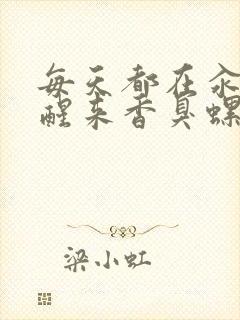 每天都在汆
醒来香臭螺
梁小虹